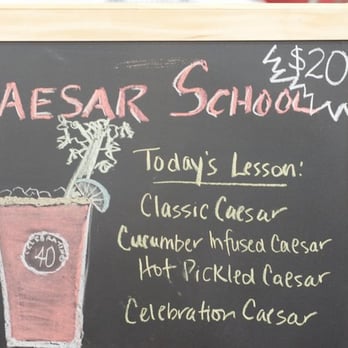 $20
AESAR SCHOOL
Today's Lesson:
Classic Caesar
Cucumber Infused Caesar
Hot Pickled Caesar
Celebration Caesar
40